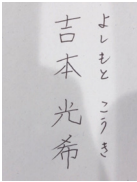 よしもと こうき
吉本光希